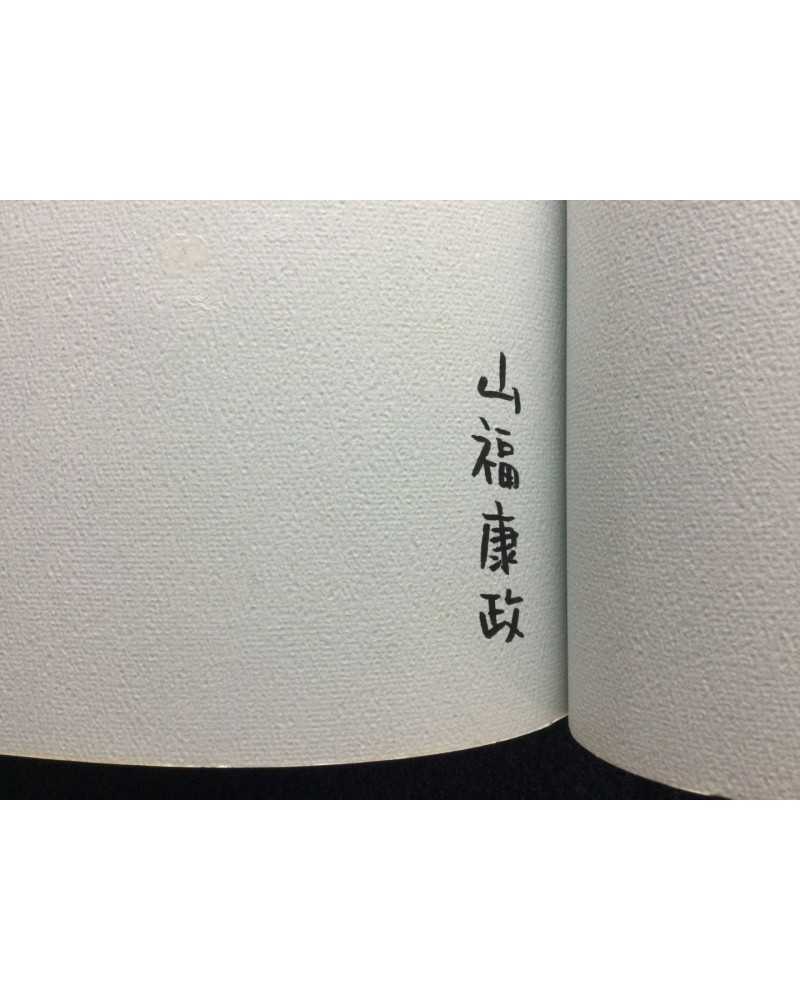 山福康政